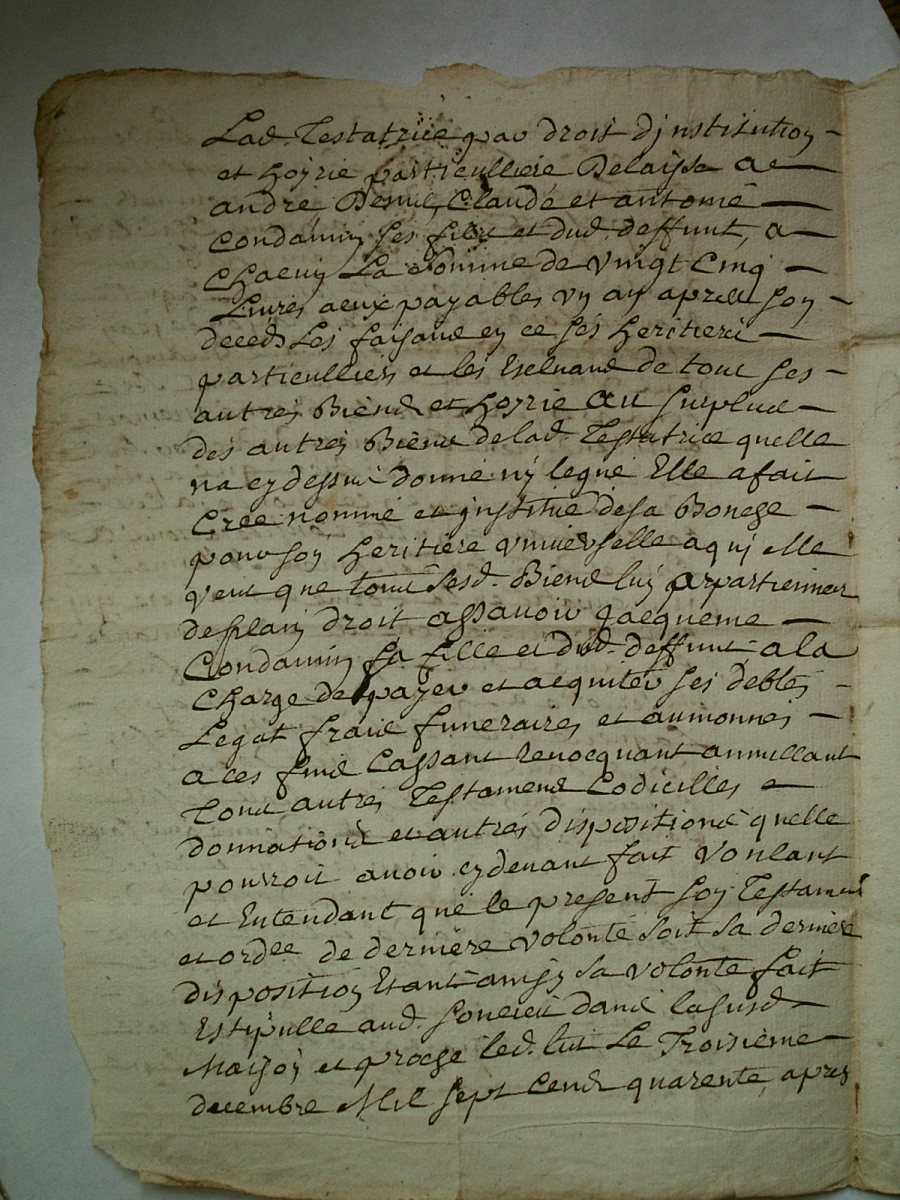 Lad. Testatrice par droit d'jnstitution
et hoyrie particulliere Delaisse a
andré Denis, Claude et antoine
Condamin ses fils et dud. deffunt, a
Chacun La somme de vingt Cinq
Livres a eux payables un an apres son
deced Les faisant en ce ses heritiers
particulliers et les Excluant de tous ses
autres Biens et hoyrie au surplus
des autres Biens de lad. Testatrice quelle
na cy dessus donné ny legué Elle a fait
Cree nommé et jnstitué de sa Bouche
pour son heritiere vniverselle a qui elle
veut que tous sesd. Biens luy appartiennen
de plain droit assavoir jacqueme
Condamin sa fille et dud. deffunt a la
Charge de payer et acquiter ses debtes
Legat frais funeraires et aumonnes
a ces fins Cassant Revocquant annullant
Tous autres Testamens Codicilles
donnations et autres dispositions quelle
pouvroit avoir cy devant fait Voulant
et Entendant que le present son Testament
et ordee de derniere volonté soit sa derniere
disposition Etant ainsy sa volonté fait
Est stipullé aud. dans lasusd.
Maison et proche led. lit Le Troisieme
decembre Mil sept Cens quarente, apres